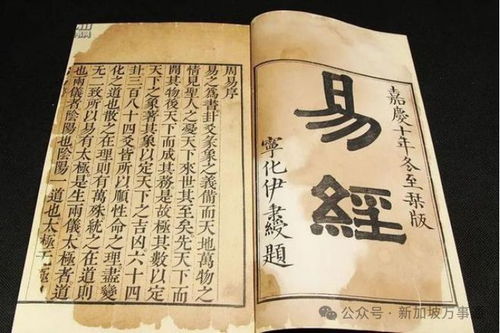 嘉慶十年冬至栞版
易經
寧化伊秉綬題
周易序
易之為書卦爻彖象之義備而天地萬物之
情見聖人之憂天下來世其至矣先天下而
開其物後天下而成其務是故極其數以定
天下之象著其象以定天下之吉凶六十四
卦三百八十四爻皆所以順性命之理盡變
化之道也散之在理則有萬殊統之在道則
无二致所以易有太極是生兩儀太極者道
也兩儀者陰陽也陰陽一道也太極无極
公众号·新加坡万事通